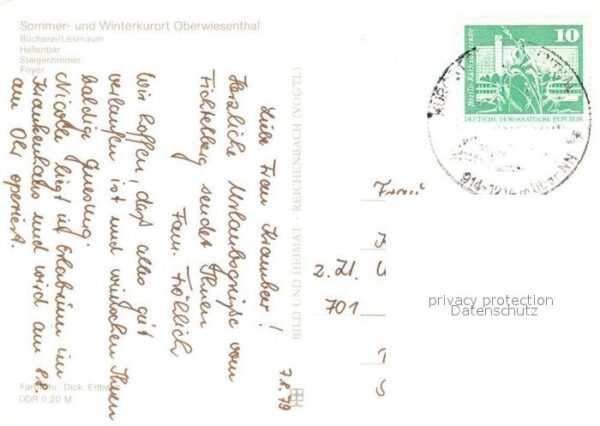 Sommer- und Winterkurort Oberwiesenthal
Bücherei/Leseraum
Hallenbar
Steigerzimmer
Foyer
7.8.79
Liebe Frau
Herzliche Urlaubsgrüße vom
Fichtelberg sendet Ihnen
Fam. Fröhlich
Wir hoffen, daß alles gut
verlaufen ist und wünschen Ihnen
baldige Genesung.
Nicole liegt in Erlabrunn im
Krankenhaus und wird am 8.8.
am Ohr operiert.
Farbfoto: Dick, Erlbach
DDR 0,20 M
BILD UND HEIMAT · REICHENBACH (VOGTL)
10
Berlin, Rathausstraße
DEUTSCHE DEMOKRATISCHE REPUBLIK
914-1214 m ÜBER NN
Frau
z. Zt. U
701
privacy protection
Datenschutz